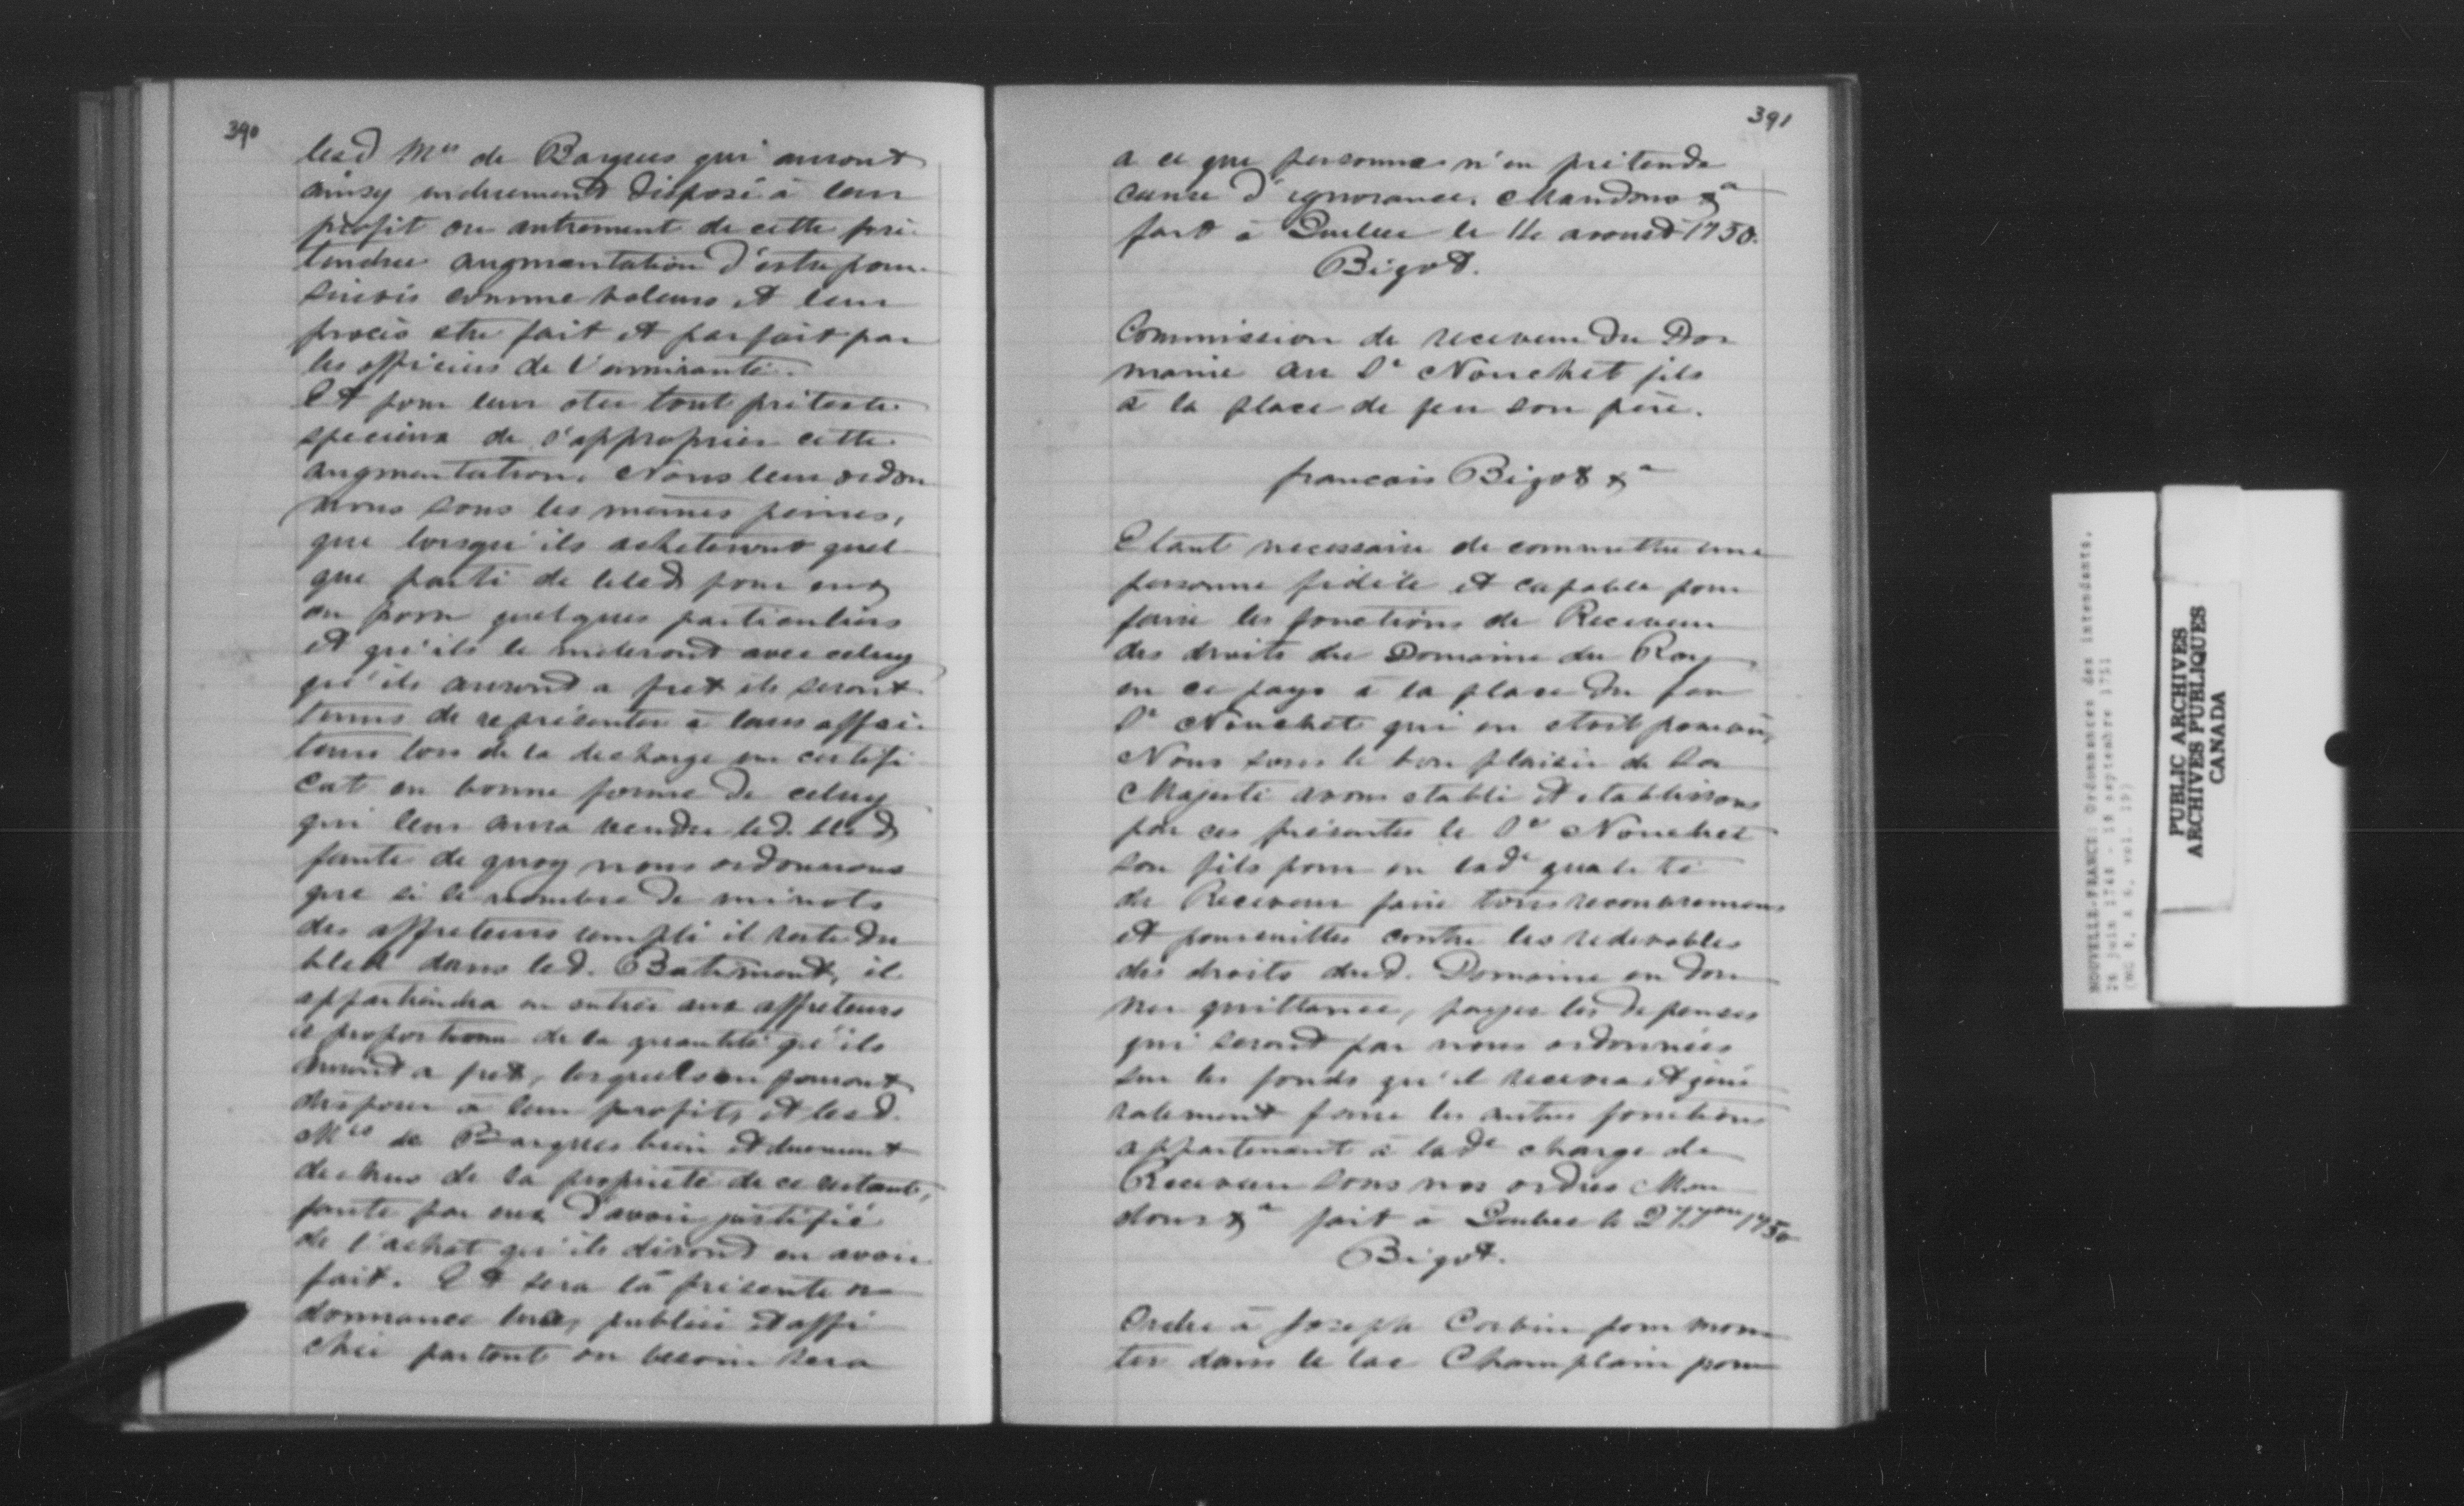 390
lesd Mes de Barques qui auront
ainsy induement disposé à leur
profit ou autrement de cette pré
tendue augmentation d'estre pour
suivis comme voleurs et leur
procès etre fait et parfait par
les officiers de l'amirauté.
Et pour leur oter tout prétexte
specieux de s'approprier cette
augmentation, Nous leur ordon
nons sous les memes peines,
que lorsqu'ils acheteront quel
que partie de bled pour eux
ou pour quelques particuliers
et qu'ils le meteront avec celuy
qu'ils auront a fret ils seront
tenus de représenter à leurs affré
teurs lors de la decharge un certifi
cat en bonne forme de celuy
qui leur aura vendu led. bled
faute de quoy nous ordonnons
que si le nombre de minots
des affreteurs rempli il reste du
bled dans led. Batiment, il
appartiendra en entier aux affreteurs
à proportion de la quantité qu'ils
auront a fret, lesquels en pouront
disposer à leur profit, et lesd.
Mes de Barques bien et duement
dechus de la propriété de ce restant,
faute par eux d'avoir justifié
de l'achat qu'ils diront en avoir
fait. Et sera la présente or
donnance lue, publiée et affi
chée partout ou besoin sera
391
a ce que personne n'en prétende
cause d'ignorance, Mandons &a
fait à Quebec le 11e aoust 1750.
Bigot.
Commission de receveur du Do
maine au Sr Nouchet fils
à la place de feu son père.
francois Bigot &a
Etant necessaire de commettre une
personne fidèle et capable pour
faire les fonctions de Receveur
des droits du Domaine du Roy
en ce pays à la place du feu
Sr Nouchet qui en etoit pourvu,
Nous sous le bon plaisir de Sa
Majesté avons etabli et etablissons
par ces présentes le Sr Nouchet
son fils pour en lade qualité
de Receveur faire tous recouvremens
et poursuittes contre les redevables
des droits dud. Domaine en don
ner quittance, payer les depenses
qui seront par nous ordonnées
sur les fonds qu'il recevra et géné
ralement faire les autres fonctions
appartenant à lade charge de
Receveur sous nos ordres Man
dons &a fait à Quebec le 27 1750
Bigot.
Ordre à Joseph Corbin pour mon
ter dans le lac Champlain pour
NOUVELLE-FRANCE: Ordonnances des intendants,
26 juin 1748 - 18 septembre 1751
(MG 8, A 6, vol. 19)
PUBLIC ARCHIVES
ARCHIVES PUBLIQUES
CANADA